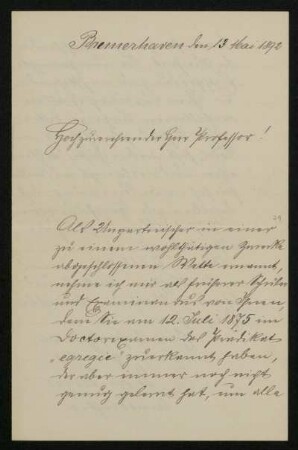 Bremerhaven den 13 Mai 1892
Hochzuverehrender Herr Professor!
29
Als Unparteiischer in einer
zu einem wohlthätigen Zwecke
abgeschlossenen Wette ernannt,
nehme ich mir als früherer Schüler
und Examinandus von Ihnen,
dem Sie am 12. Juli 1875 im
Doctorexamen das Prädikat
"egregie" zuerkannt haben,
der aber immer noch nicht
genug gelernt hat, um alle